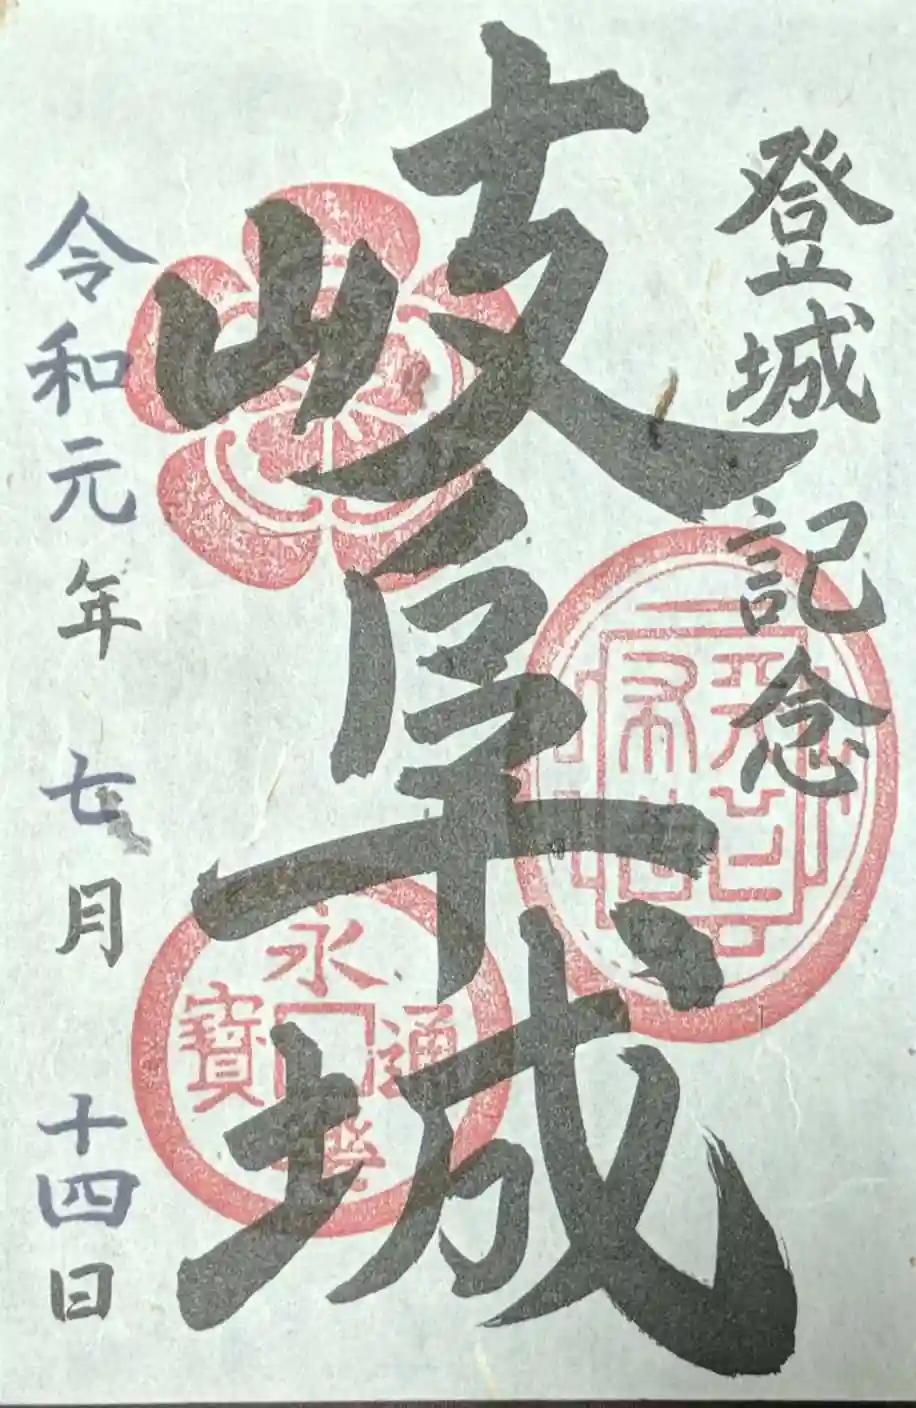 登城記念
岐阜城
令和元年七月十四日
永
通
寶